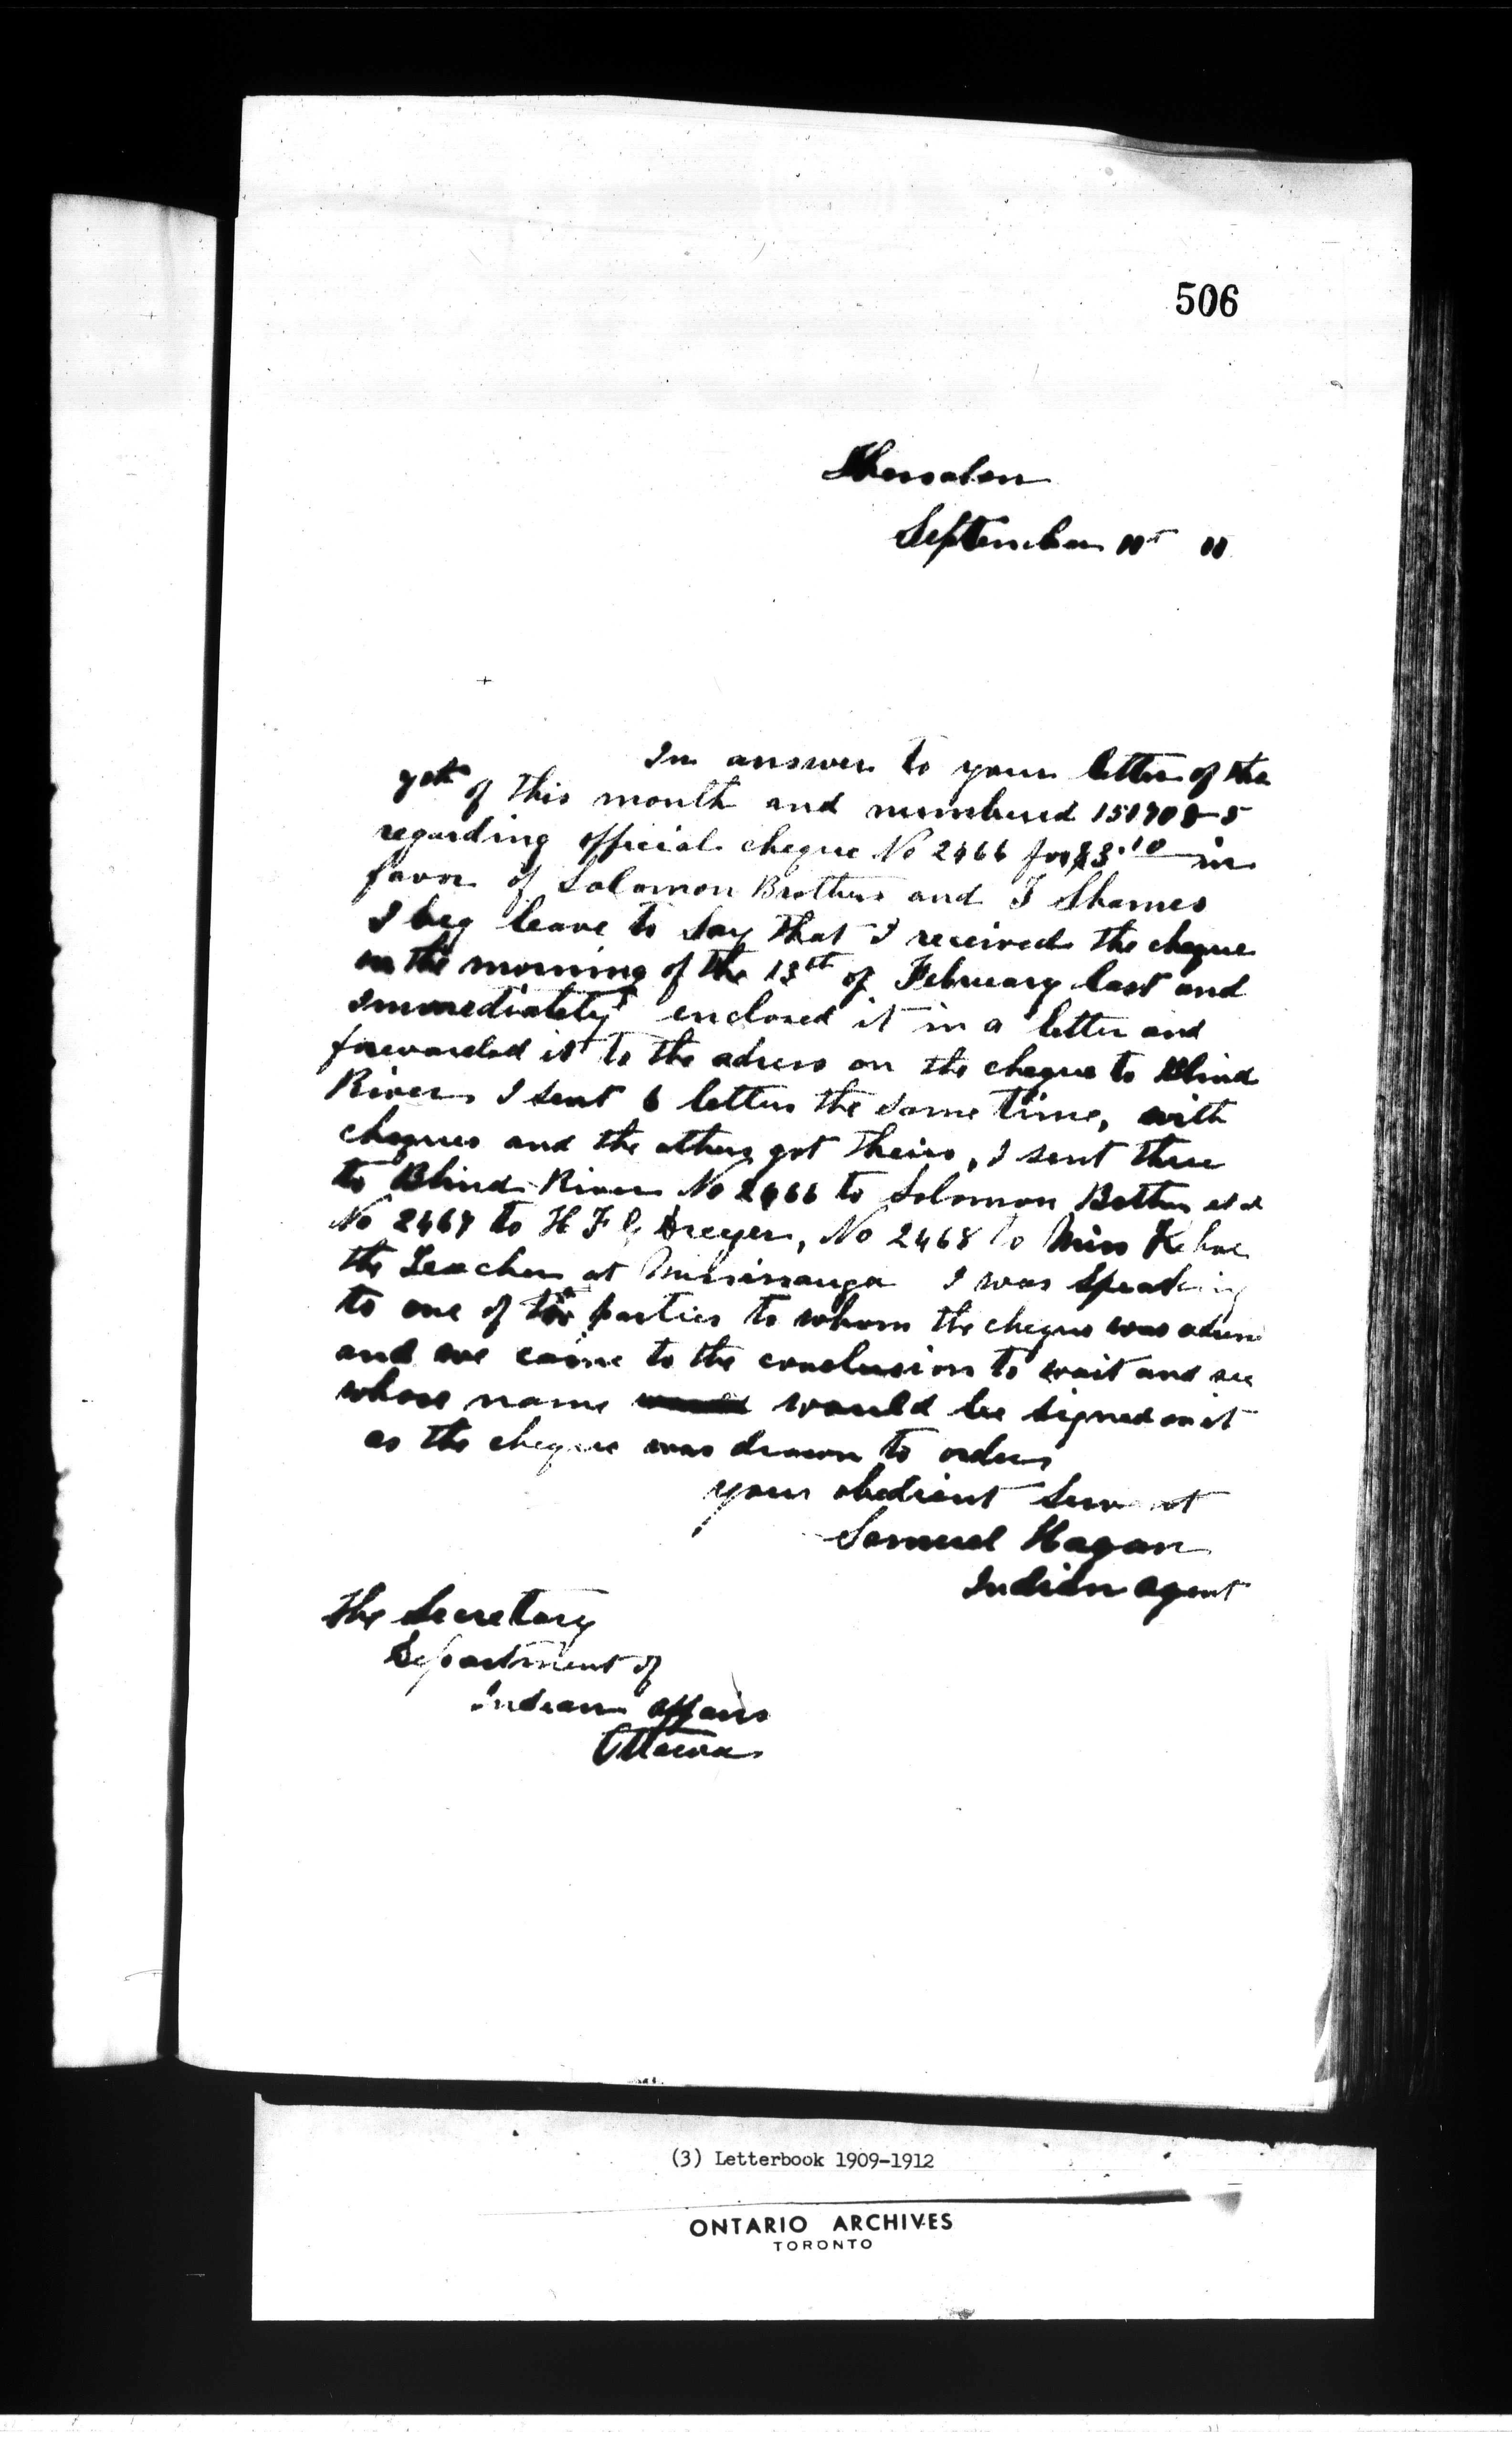 506
Thessalon
September 11th 11
In answer to your letter of the
7th of this month and numbered 151708-5
regarding official cheque No 2466 for $3.10 in
favor of Solomon Brothers and I Shames
I beg leave to say that I received the cheque
on the morning of the 13th of February last and
immediately enclosed it in a letter and
forwarded it to the adress on the cheque to Blind
River I sent 6 letters the same time, with
cheques and the others got theirs, I sent three
to Blind River No 2466 to Solomon Bothers et al
No 2467 to H F Dreyer, No 2468 to Miss Kehoe
the Teacher at Mississauga I was speaking
to one of the parties to whom the cheque was
and we came to the conclusion to wait and see
whose name would would be signed on it
as the cheque was drawn to order
your obedient Servant
Samuel Hagan
Indian Agent
The Secretary
Department of
Indian Affairs
Ottawa
(3) Letterbook 1909-1912
ONTARIO ARCHIVES
TORONTO